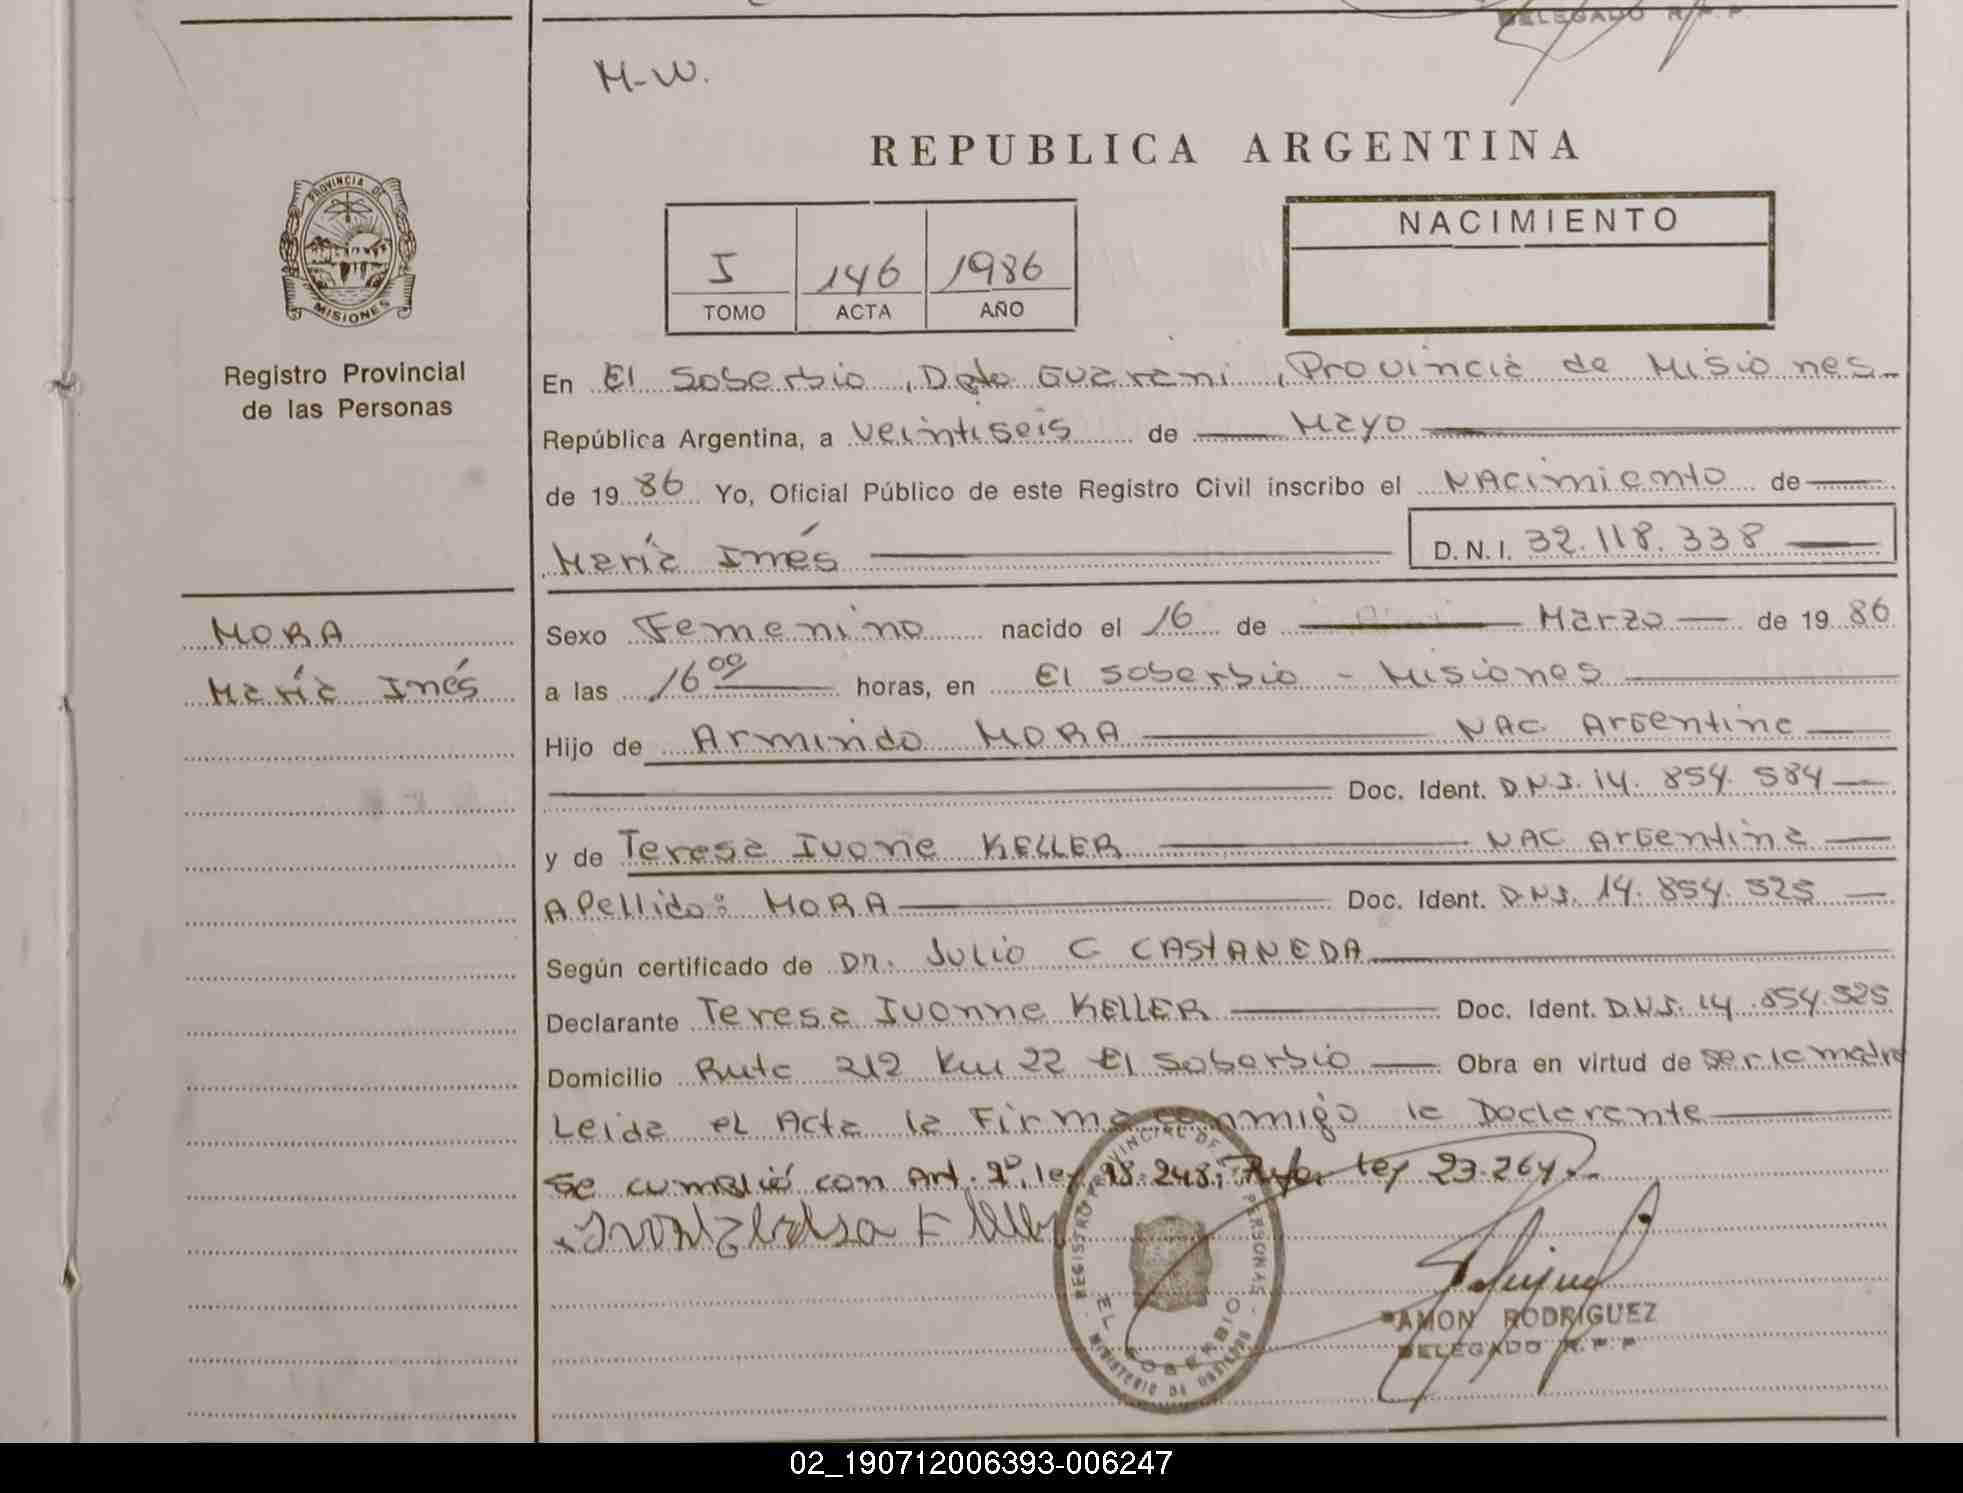 DELEGADO R.P.P.
M-W.
REPUBLICA ARGENTINA
PROVINCIA DE
MISIONES
Registro Provincial
de las Personas
I 146 1986
TOMO ACTA AÑO
NACIMIENTO
En El Soberbio, Dpto Guarani, Provincia de Misiones
República Argentina, a veintiseis de Mayo
de 1986 Yo, Oficial Público de este Registro Civil inscribo el NACimiento de
María Inés D.N.I. 32.118.338
MORA
María Inés
Sexo Femenino nacido el 16 de Marzo de 1986
a las 16 00 horas, en El Soberbio - Misiones
Hijo de Armindo MORA NAC Argentina
Doc. Ident. D.N.I. 14.854.584
y de Teresa Ivone KELLER NAC Argentina
Apellido: MORA Doc. Ident. D.N.I. 14.854.525
Según certificado de DR. Julio C CASTANEDA
Declarante Teresa Ivonne KELLER Doc. Ident. D.N.I. 14.854.525
Domicilio Ruta 212 Km 22 El Soberbio Obra en virtud de ser la madre
Leida el Acta la Firma conmigo la Declarante
Se cumplió con Art. 2º. ley 18.248, ley 23.264.-
REGISTRO PROVINCIAL DE PERSONAS
EL SOBERBIO
MINISTERIO DE GOBIERNO
RAMON RODRIGUEZ
DELEGADO R.P.P.
02_190712006393-006247